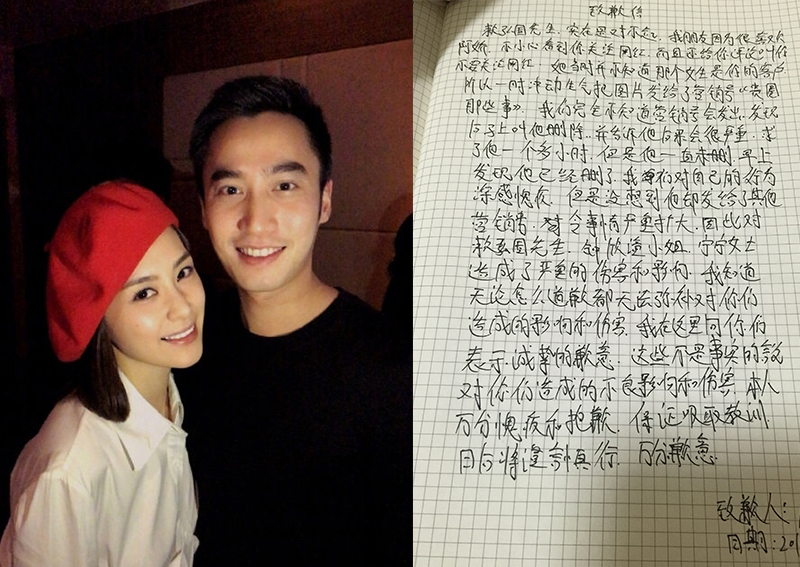 致歉信
赖弘国先生,实在是对不起了,我朋友因为很喜欢
阿娇,不小心看到你关注网红,而且还给你评论叫你
不要关注网红,她当时并不知道那个女生是你的客户
所以一时冲动生气把图片发给了营销号《贵圈
那些事》,我们完全不知道营销号会发出,发现
后马上叫他删除,并告诉他后果会很严重,求
了他一个多小时,但是他一直未删,早上
发现他已经删了,我们对自己的行为
深感愧疚,但是没想到他却发给了其他
营销号,对令事情严重扩大,因此对
赖弘国先生,钟欣造小姐,宁宁女士
造成了严重的伤害和影响,我知道
无论怎么道歉都无法弥补对你们
造成的影响和伤害,我在这里向你们
表示诚挚的歉意,这些不是事实的说
对你们造成的不良影响和伤害,本人
万分愧疚和抱歉,保证吸取教训
日后将谨言慎行,万分歉意
致歉人:
日期:201